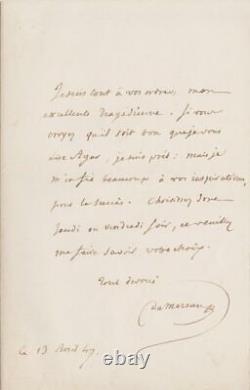 Je suis tout à vos ordres, mon
excellente tragédienne. Si vous
croyez qu'il soit bon que je vous
aux Agar, je suis prêt: mais je
m'en fie beaucoup à vos inspirations
pour le succès. Choisissez donc
Jeudi ou vendredi soir, et veuillez
me faire savoir votre choix.
Tout dévoué
le 13 Avril 47.
© ebay